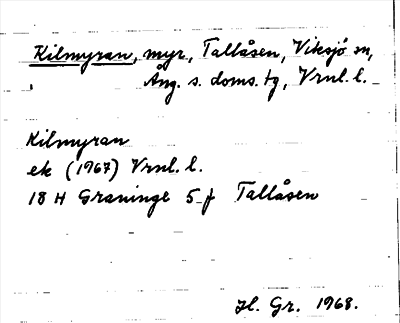 Kilmyran, myr, Tallåsen, Viksjö sn,
Ång. s. doms. tg, Vrnl. l.
Kilmyran
ek (1967) Vrnl. l.
18 H Graninge 5 f Tallåsen
Hl. Gr. 1968.